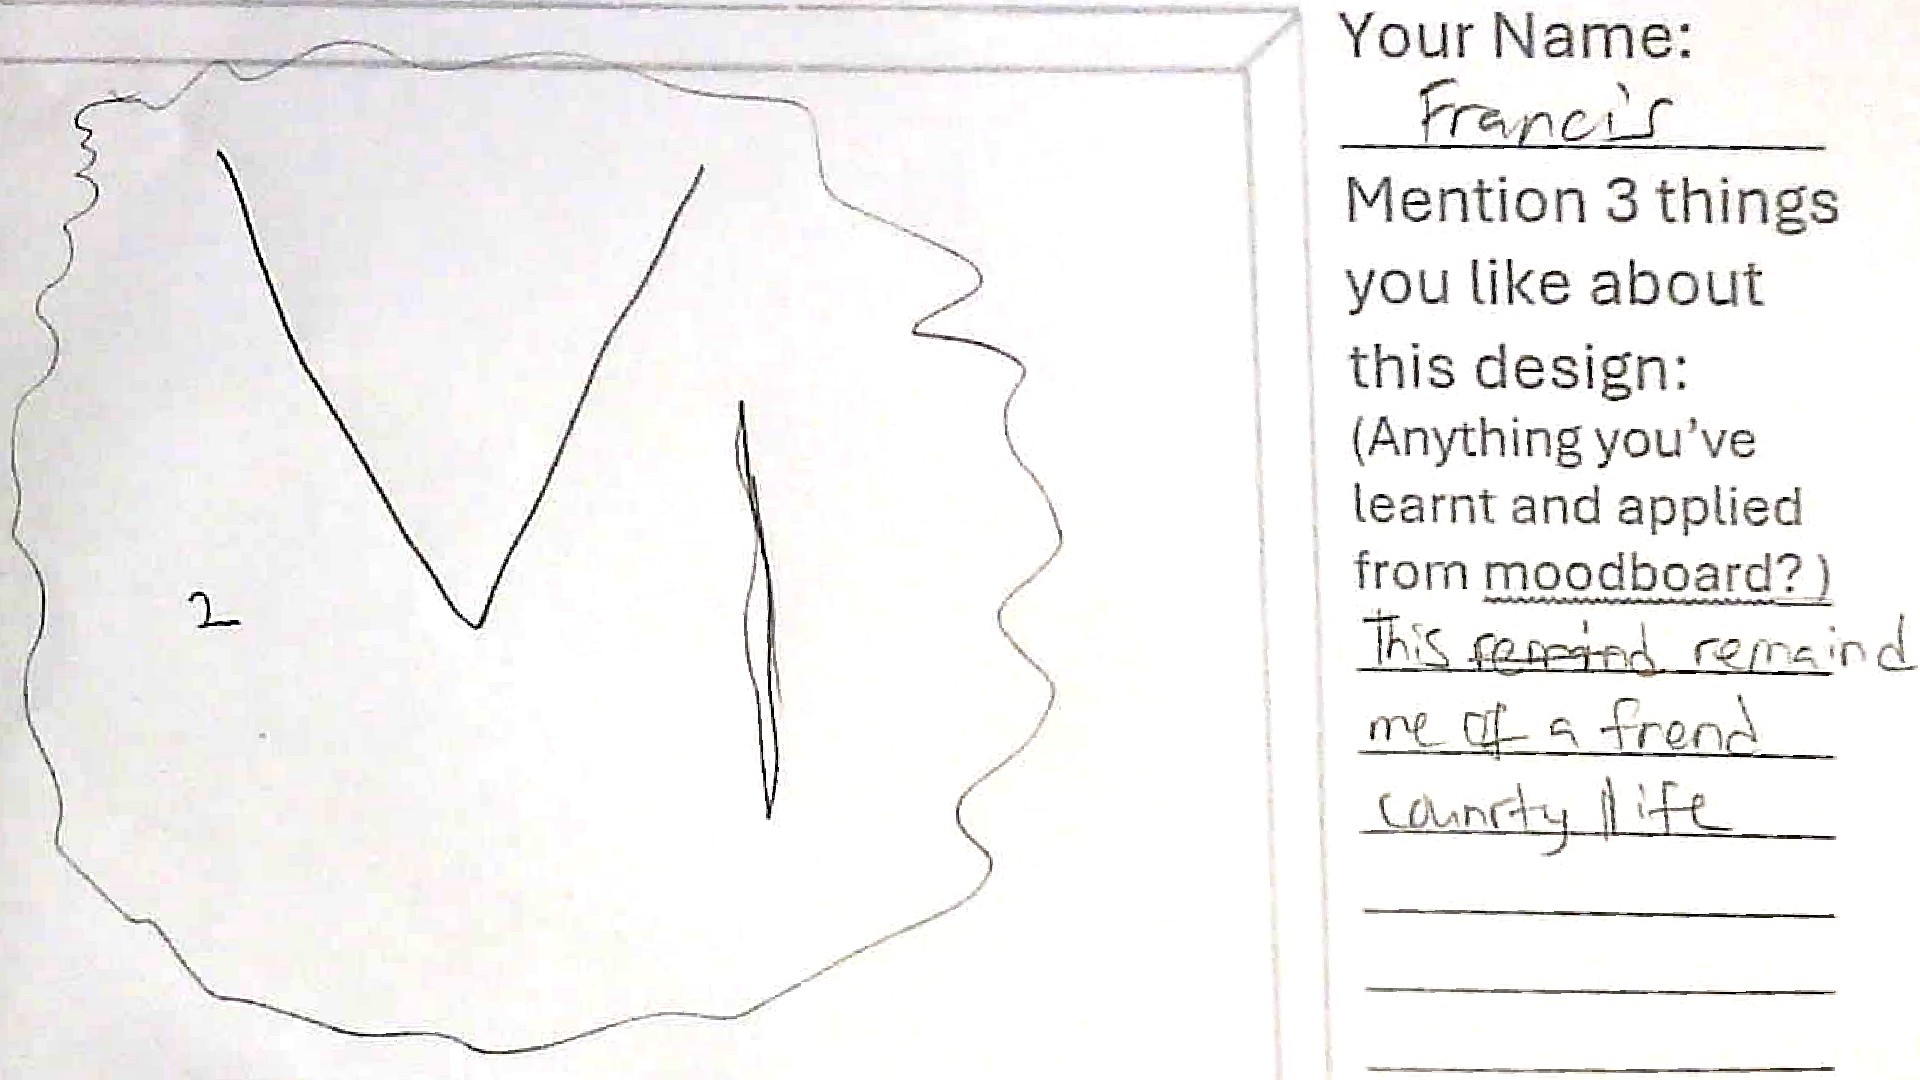 Your Name:
Francis
Mention 3 things
you like about
this design:
(Anything you've
learnt and applied
from moodboard?)
This remind remaind
me of a frend
counrty life
2